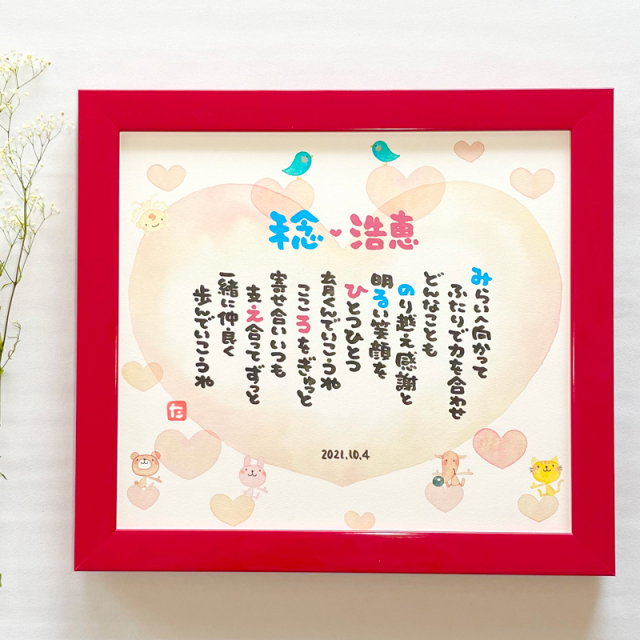 稔・浩恵
みらいへ向かって
ふたりで力を合わせ
どんなことも
のり越え感謝と
明るい笑顔を
ひとつひとつ
育くんでいこうね
こころをぎゅっと
寄せ合いいつも
支え合ってずっと
一緒に仲良く
歩んでいこうね
2021.10.4